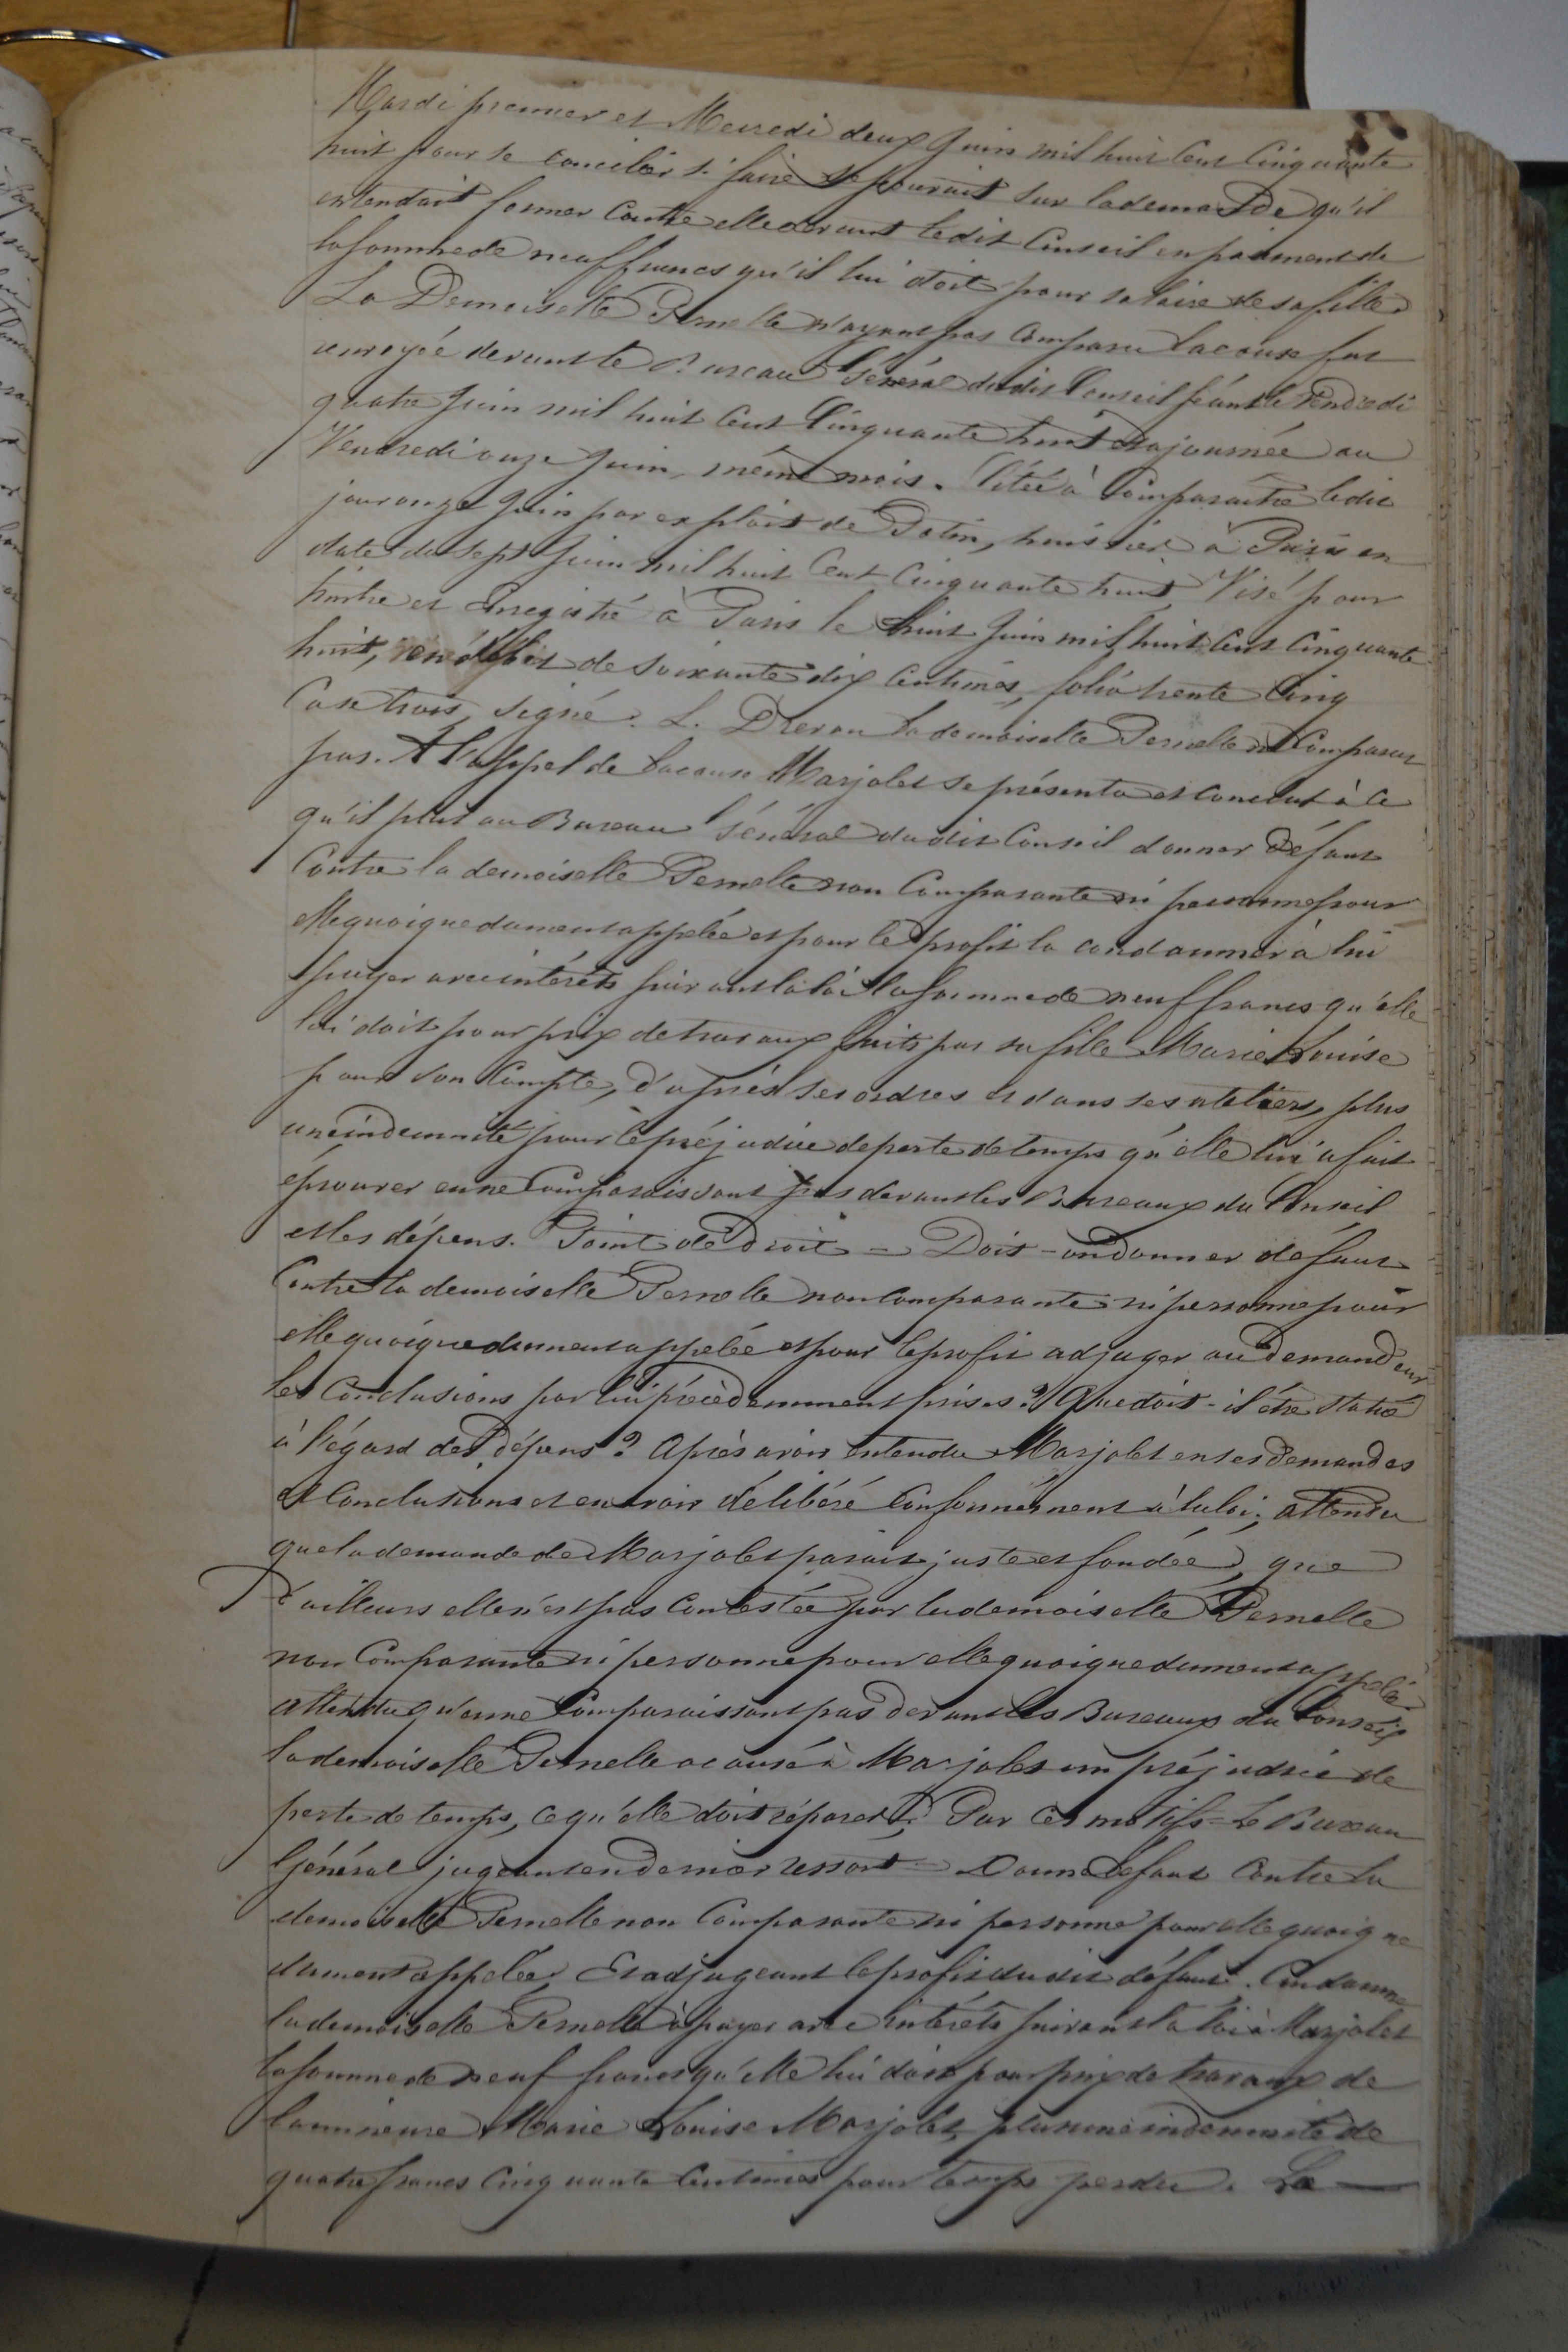 Mardi premier et Mercredi deux Juin mil huit cent cinquante
huit pour se concilier si faire se pouvait sur la demande qu'il
entendait former contre elle devant ledit Conseil en paiement de
la somme de neuf francs qu'il lui doit pour salaire de sa fille.
La Demoiselle Pernelle n'ayant pas comparu la cause fut
renvoyée devant le Bureau Général dudit Conseil séant le Vendredi
quatre Juin mil huit cent cinquante huit et ajournée au
Vendredi onze Juin, même mois. Citée à comparaître ledit
jour onze Juin par exploit de Potin, huissier à Paris en
date du sept Juin mil huit cent cinquante huit, Visé pour
timbre et Enregistré à Paris le huit Juin mil huit cent cinquante
huit, en débet de soixante dix centimes, folio trente cinq
Case trois, signé: L. Dreran la demoiselle Pernelle ne comparut
pas. A l'appel de la cause Marjolet se présenta et conclut à ce
qu'il plut au Bureau Général dudit Conseil donner défaut
Contre la demoiselle Pernelle non Comparante ni personne pour
elle quoique dument appelée et pour le profit la condamner à lui
payer avec intérêts suivant la loi la somme de neuf francs qu'elle
lui doit pour prix de travaux faits par sa fille Marie Louise
pour son Compte, d'après ses ordres et dans ses ateliers, plus
une indemnité pour le préjudice de perte de temps qu'elle lui a fait
éprouver en ne Comparaissant pas devant les Bureaux du Conseil
et les dépens. Point de Droit = Doit-on donner défaut
Contre la demoiselle Pernelle non Comparante ni personne pour
elle quoique dument appelée et pour le profit adjuger au Demandeur
les Conclusions par lui précédemment prises? Que doit-il être statué
à l'égard des dépens? Après avoir entendu Marjolet en ses Demandes
et Conclusions et en avoir délibéré Conformément à la loi; attendu
que la demande de Marjolet parait juste et fondée; que
d'ailleurs elle n'est pas Contestée par la demoiselle Pernelle
non Comparante ni personne pour elle quoique dument appelée
attendu qu'en ne Comparaissant pas devant les Bureaux du Conseil
la demoiselle Pernelle a causé à Marjolet un préjudice de
perte de temps, ce qu'elle doit réparer; Par ces motifs = Le Bureau
Général jugeant en dernier ressort = Donne défaut Contre la
demoiselle Pernelle non Comparante ni personne pour elle quoique
dument appelée; Et adjugeant le profit dudit défaut. Condamne
la demoiselle Pernelle à payer avec intérêts suivant la loi à Marjolet
la somme de neuf francs qu'elle lui doit pour prix de travaux de
la mineure Marie Louise Marjolet, plus une indemnité de
quatre francs cinquante Centimes pour temps perdu. La